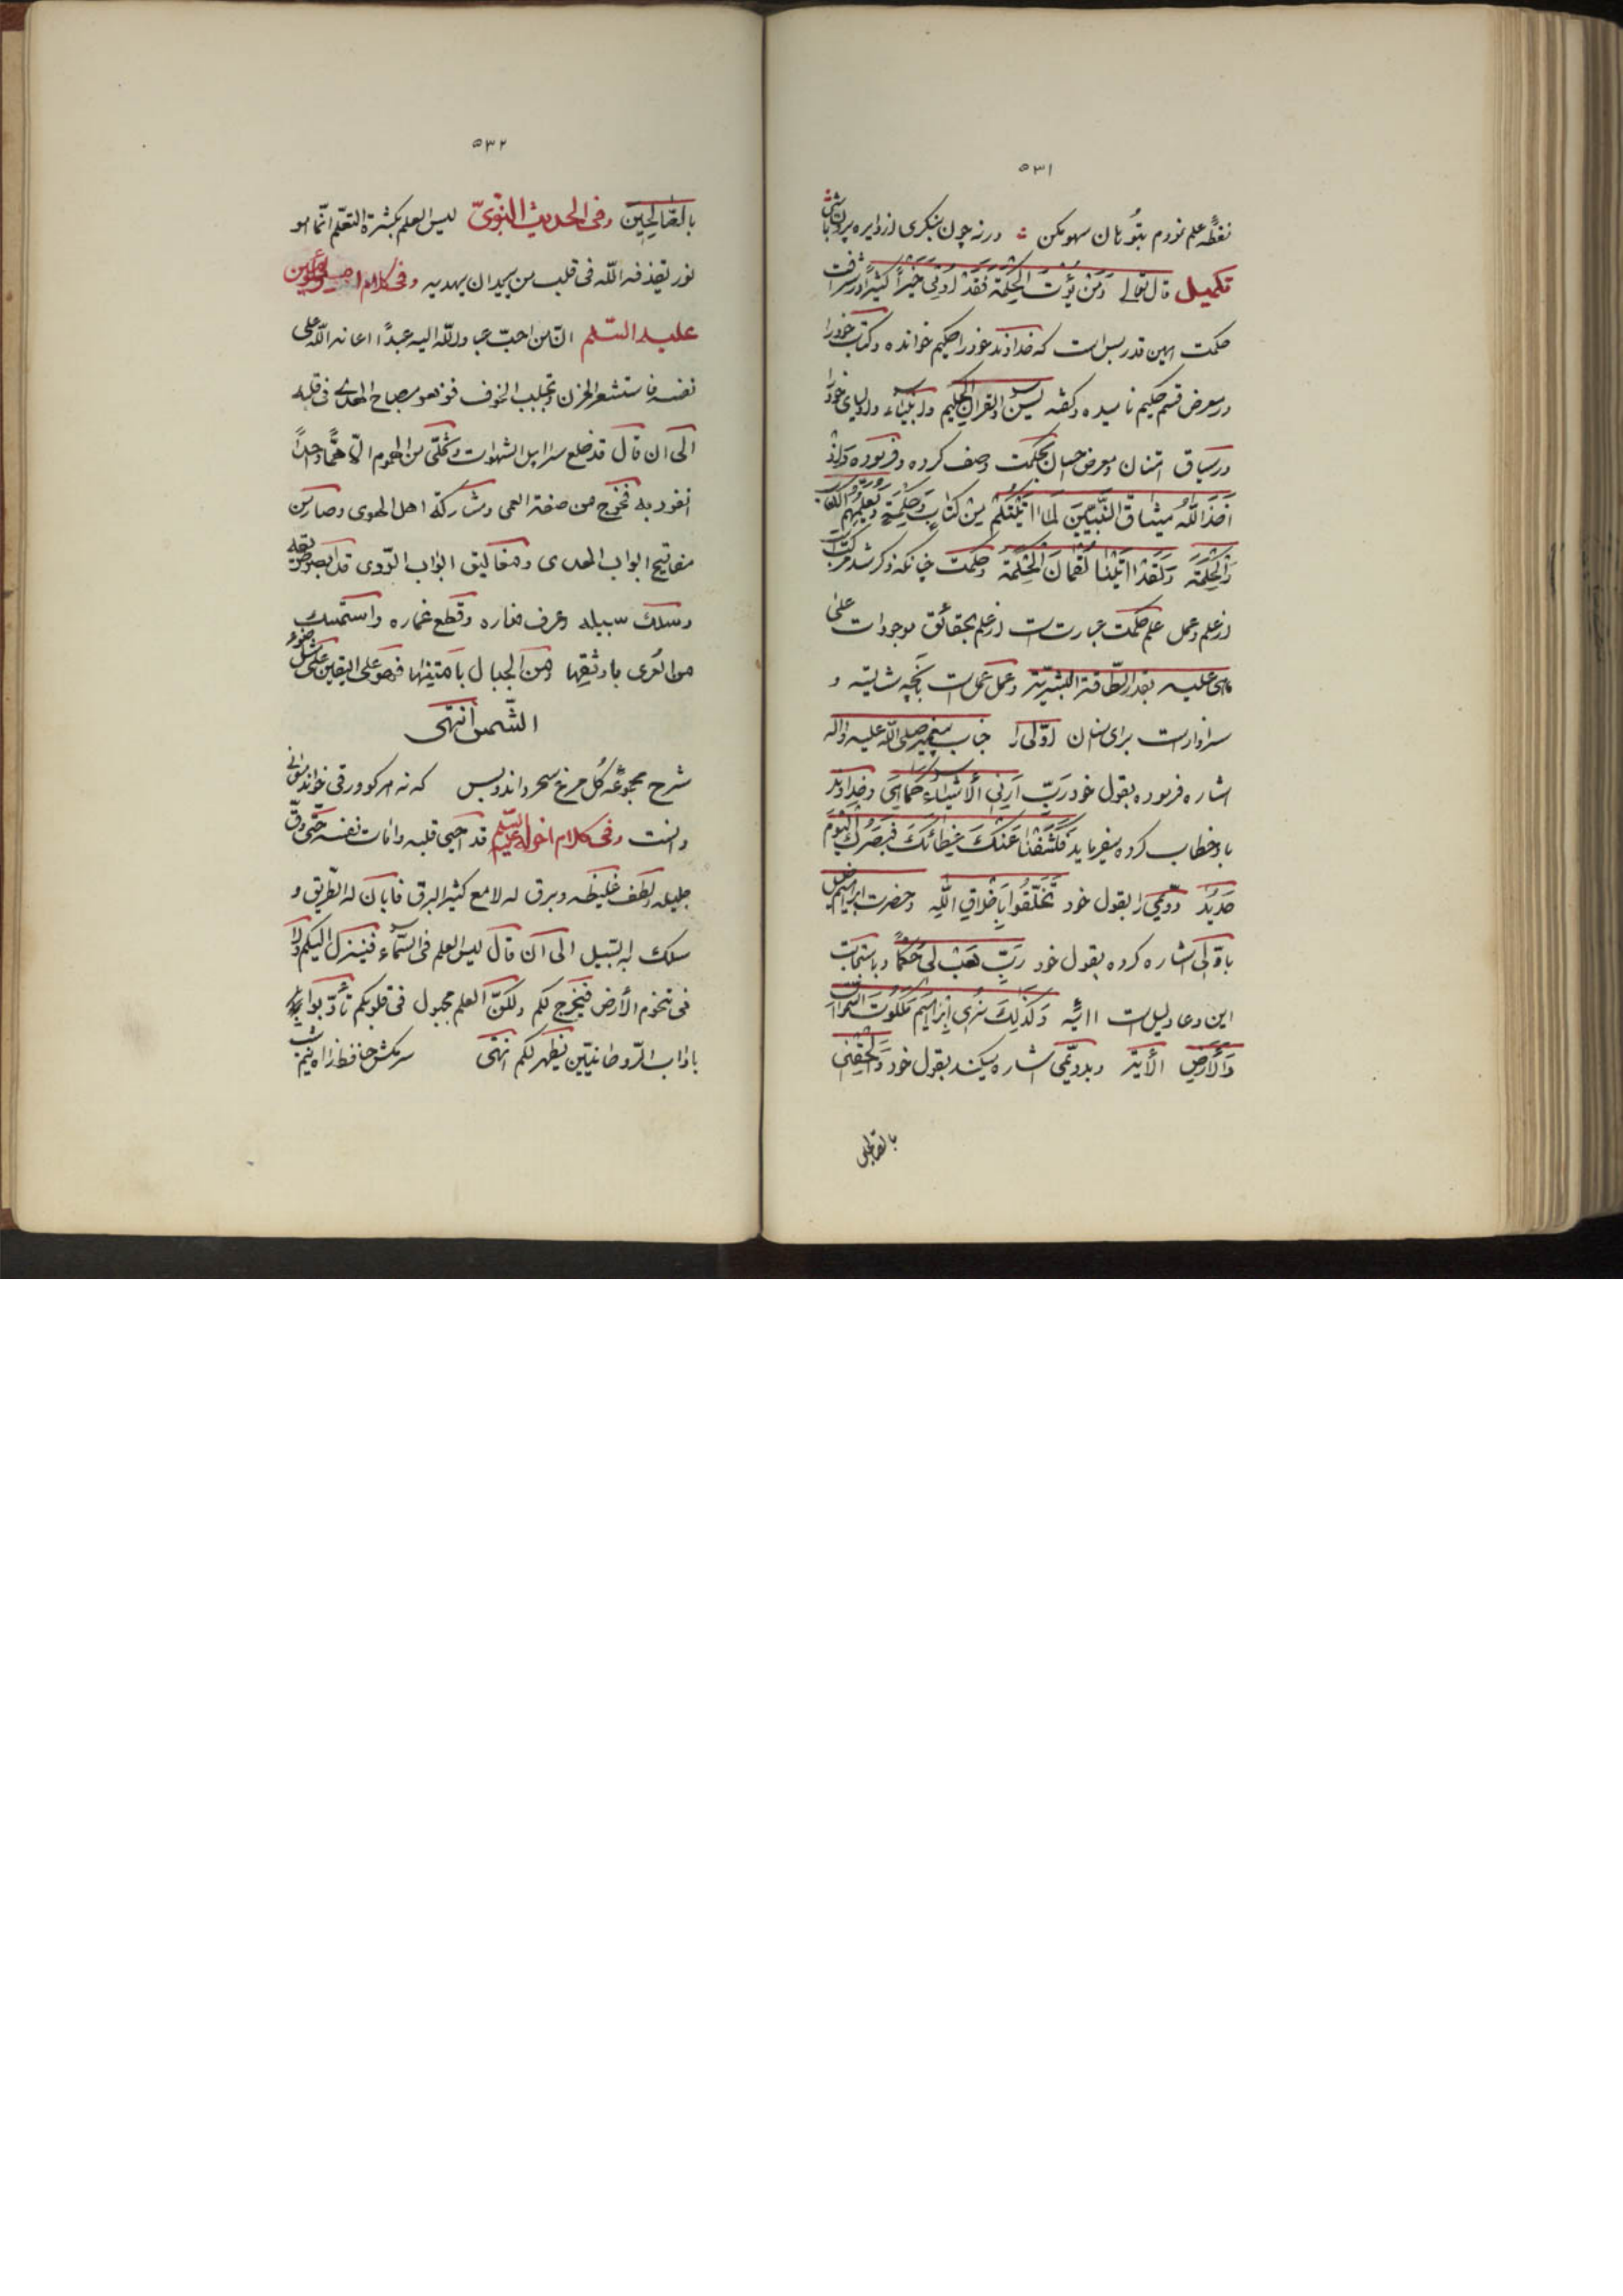 ۵۳۱
نقطه علم نودم بتو زمان سهو مکن ورنه چون بنگری از دایره بیرون باشی
تکمیل قال تعالی وَمَنْ یُؤْتَ الْحِکْمَةَ فَقَدْ اُوتِیَ خَیْراً کَثیراً در شرافت
حکمت همین قدر بس است که خداوند خود را حکیم خوانده وکتاب خود را
در معرض قسم حکیم نامیده وگفته یس والقرآن الحکیم وانبیاء واولیای خود را
در سیاق امتنان ومعرض احسان بحکمت وصف کرده وفرموده وَاِذْ
اَخَذَ اللهُ میثاقَ النَّبِیّینَ لَمَا اتَیْتُکُمْ مِنْ کِتابٍ وَحِکْمَةٍ وَیُعَلِّمُهُمُ الْکِتابَ
وَالْحِکْمَةَ وَلَقَدْ اتَیْنا لُقْمانَ الْحِکْمَةَ وحکمت چنانکه ذکر شد مرکب است
از علم وعمل علم حکمت عبارتست از علم بحقائق موجودات علی
ماهی علیه بقدر الطّاقة البشریّة وعمل عمل است بآنچه شایسته و
سزاوار است برای انسان اوّلی را جناب پیغمبر صلی الله علیه واله
اشاره فرموده بقول خود رَبِّ اَرِنِی الْاَشْیاءَ کَمَا هِیَ وخداوند
باو خطاب کرده میفرماید فَکَشَفْنا عَنْکَ غِطائَکَ فَبَصَرُکَ الْیَوْمَ
حَدیدٌ دوّمی را بقول خود تَخَلَّقُوا بِاَخْلاقِ اللهِ وحضرت ابراهیم خلیل
باوّلی اشاره کرده بقول خود رَبِّ هَبْ لی حُکْماً وباستجابت
این دعا دلیل است ایه وَکَذلِکَ نُری اِبْراهیمَ مَلَکُوتَ السَّمواتِ
وَالْاَرْضِ الْایة وبدوّمی اشاره میکند بقول خود وَاَلْحِقْنی
بالصّالحین
۵۳۲
بِالصّالِحِینَ وفی الحدیث النبویّ لیس العلم بکثرة التعلّم انّما هو
نور یقذفه الله فی قلب من یرید ان یهدیه وفی کلام امیر المؤمنین
علیه السّلم انّ من احبّ عباد الله الیه عبداً اعانه الله علی
نفسه فاستشعر الحزن وتجلبب الخوف فزهر مصباح الهدی فی قلبه
الی ان قال قد خلع سرابیل الشهوات وتخلّی من الهموم الّا همّاً واحداً
انفرد به فخرج من صفة العمی ومشارکة اهل الهوی وصار من
مفاتیح ابواب الهدی ومغالیق ابواب الرّدی قد ابصر طریقه
وسلک سبیله وعرف مناره وقطع غماره واستمسک
من العری باوثقها ومن الجبال بامتنها فهو علی الیقین علی مثل ضوء
الشّمس انتهی
شرح مجموعه گل مرغ سحر داند وبس که نه هر کو ورقی خواند معانی
دانست وفی کلام اخر له علیه السّلم قد احیی قلبه وامات نفسه حتّی دقّ
جلیله ولطف غلیظه وبرق له لامع کثیر البرق فابان له الطّریق و
سلک به السّبیل الی ان قال لیس العلم فی السّماء فینزل الیکم ولا
فی تخوم الأرض فیخرج لکم ولکنّ العلم مجبول فی قلوبکم تأدّبوا
باداب الرّوحانیّین یظهر لکم انتهی سرمکش حافظ ز آه نیم شب